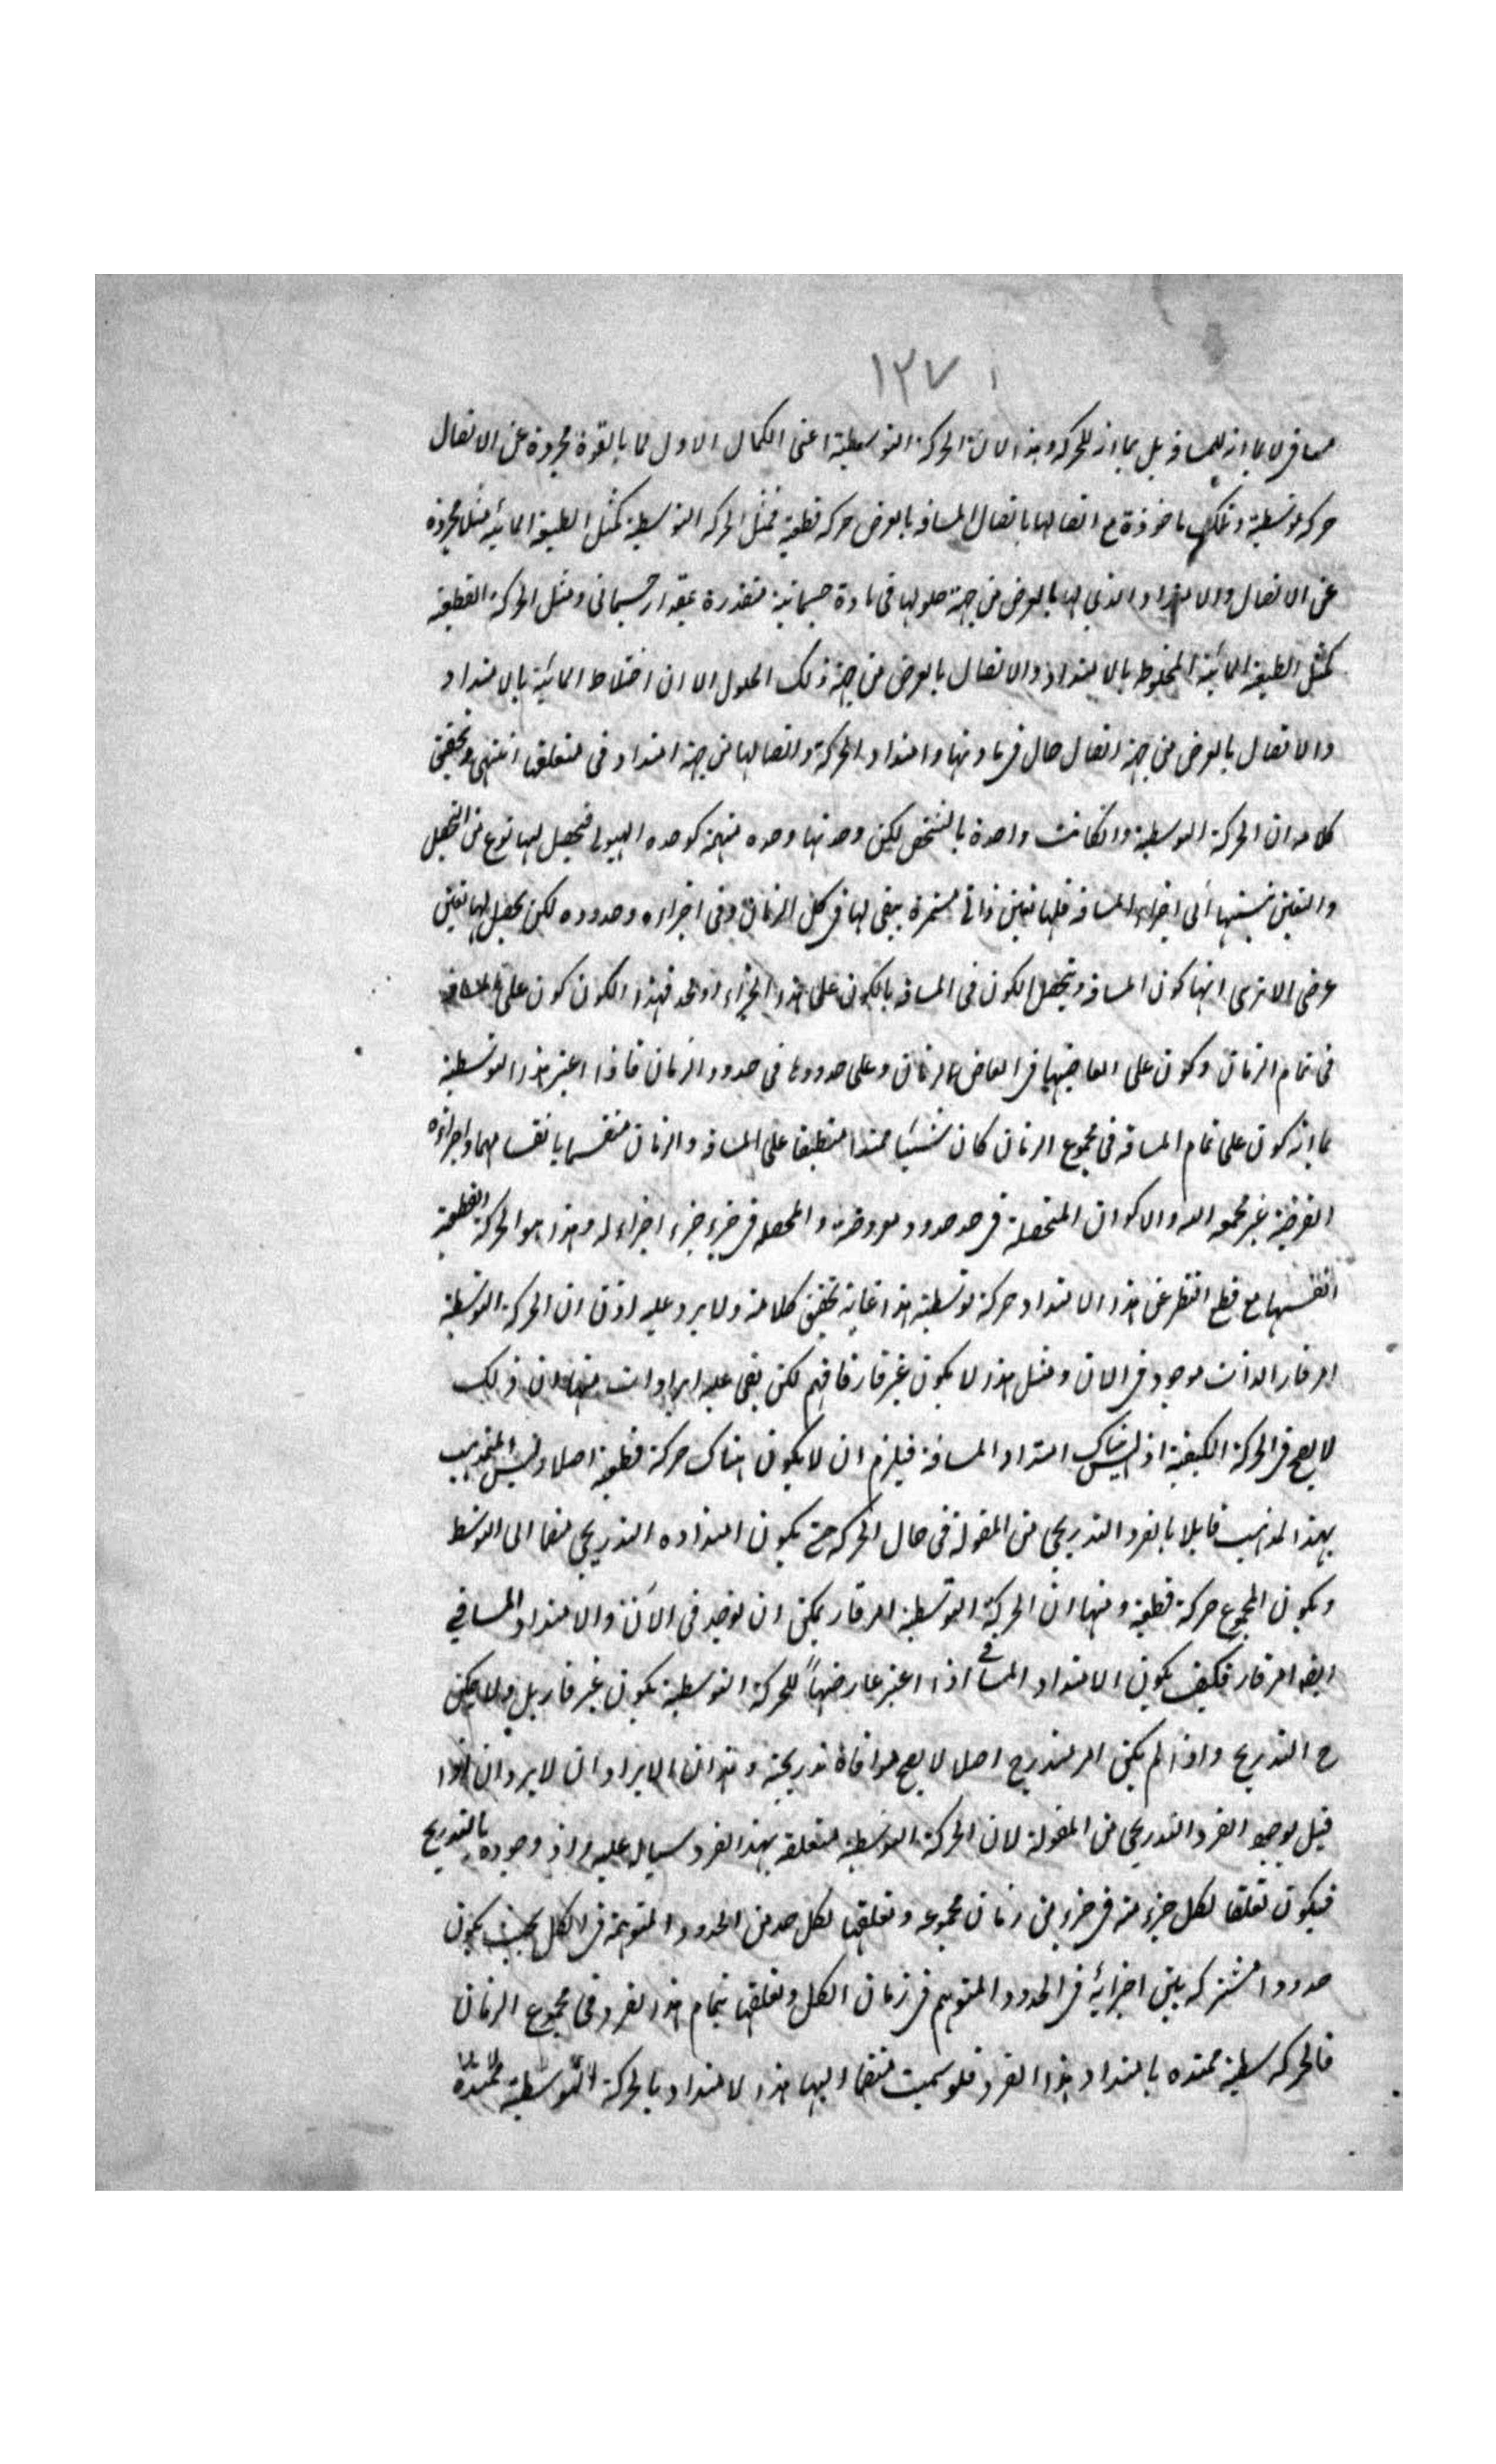 ١٣٧
مسافى لا بما انه للمسافة بل بما انه للحركة وهذا لان الحركة التوسطية اعنى الكمال الاول لما بالقوة مجردة عن الاتصال
حركة توسطية وتلك ماخوذة مع اتصالها باتصال المسافة بالعرض حركة قطعية فمثل الحركة التوسطية كمثل الطبيعة المائية مثلا مجردة
عن الاتصال والامتداد الذى لها بالعرض من جهة حلولها فى مادة جسمانية متقدرة بمقدار جسمانى ومثل الحركة القطعية
كمثل الطبيعة المائية المخلوط بالامتداد والاتصال بالعرض من جهة ذلك الحلول الا ان اختلاط المائية بالامتداد
والاتصال بالعرض من جهة اتصال حال فى مادتها وامتداد الحركة واتصالها من جهة امتداد فى متعلقها انتهى وتحقيق
كلامه ان الحركة التوسطية وانكانت واحدة بالشخص لكن وحدتها وحده مبهمة كوحده الهيولى فيحصل لها نوع من التحصل
والتعين بنسبتها الى اجزاء المسافة فلها تعين ذاتى مستمرة يبقى لها فى كل الزمان وفى اجزاءه وحدوده لكن يحصل لها تعين
عرضى الا ترى انها كون المسافة ويتحصل الكون فى المسافة بالكون على هذا الجزاء او الحد فهذا الكون كون على المسافة
فى تمام الزمان وكون على ابعاضها فى ابعاض الزمان وعلى حدودها فى حدود الزمان فاذا اعتبر هذا التوسطية
بما انه كون على تمام المسافة فى مجموع الزمان كان شيئا ممتدا منطبقا على المسافة والزمان منقسما بانقسامهما واجزاؤه
الفرضية غير مجموعه والاكوان المتحصلة فى حد حدود مفروضة والمحصلة فى جزء جزء اجزاء له وهذا هو الحركة القطعية
انفسها مع قطع النظر عن هذا الامتداد حركة توسطية هذا غاية تحقيق كلامه ولا يرد عليه اذن ان الحركة التوسطية
امر قار الذات موجود فى الان ومثل هذا لا يكون غير قار فافهم لكن بقى عليه ايرادات منها ان ذلك
لا يصح فى الحركة الكيفية اذ ليس هناك امتداد المسافة فيلزم ان لا يكون هناك حركة قطعية اصلا وليس المتمذهب
بهذا المذهب قايلا بالفرد التدريجى من المقولة فى حال الحركة حتى يكون امتداده التدريجى منضما الى التوسط
ويكون المجموع حركة قطعية ومنها ان الحركة التوسطية امر قار يمكن ان يوجد فى الآن والامتداد المسافي
ايضا امر قار فكيف يكون الامتداد المسافى اذا اعتبر عارضها للحركة التوسطية يكون غير قار بل ولا يمكن
ح التدريج واذا لم يكن امر متدرج اصلا لا يصح موافاة تدريجية وهذان الايرادان لا يردان اذا
قيل بوجود الفرد التدريجى من المقولة لان الحركة التوسطية متعلقة بهذا الفرد سيال عليه واذ وجوده بالتدريج
فيكون تعلقا لكل جزء منه فى جزء من زمان مجموعه وتعلقها لكل حد من الحدود المتوهمة فى الكل بحيث يكون
حدودا مشتركه بين اجزائه فى الحدود المتوهم فى زمان الكل وتعلقها بتمام هذا الفرد فى مجموع الزمان
فالحركه سطية ممتده بامتداد هذا الفرد فلو سميت منضما اليها هذا الامتداد بالحركة التوسطية ممتدة